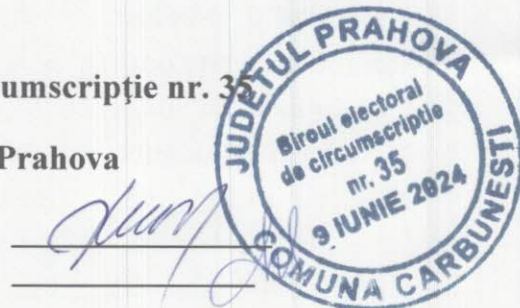 umscripţie nr. 35
Prahova
JUDEŢUL PRAHOVA
Biroul electoral
de circumscriptie
nr. 35
9 IUNIE 2024
COMUNA CARBUNESTI